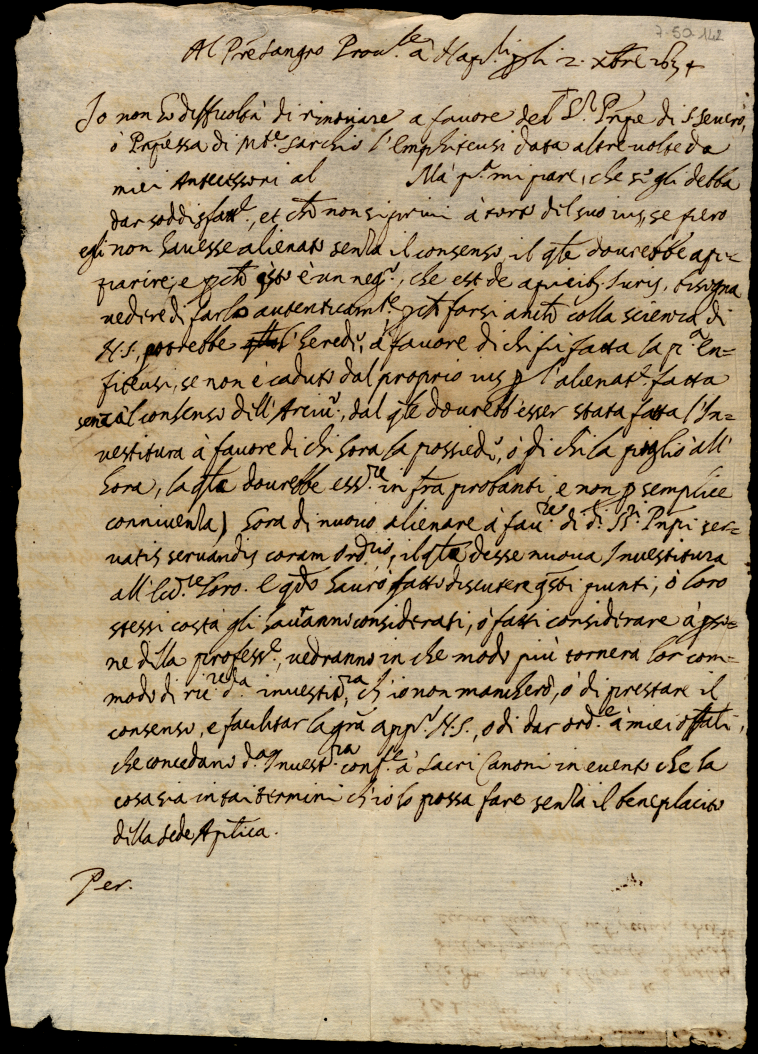 7-50 142
Al P're Sangro Prou.le à Nap.li p'o li 2. xbre 1634
Io non hò difficoltà di rinouare a fauore del S.r P'npe di S. Seuero,
ò P'npessa di M.te Sarchio l'Emphiteusi data altre uolte da
miei Antecessori al Mà p.a mi pare, che si gli debba
dar soddisfatt.e, et ch'e non si priui à torto del suo ius, se pero
egli non hauesse alienato senza il consenso, il q'le dourebbe ap=
parire; e p'che q'sto è un neg.o, che est de apicib's Iuris, bisogna
uedere di farlo autenticam.te p'che farsi anch'e colla scienza di
N.S. potrebbe l'herede, à fauore di chi fù fatta la p.a en=
fiteusi, se non è caduto dal proprio ius p l'alienat.e fatta
senza il consenso dell'Arciu.o, dal q'le dourebb'esser stata fatta l'In=
uestitura à fauore di chi hora la possiede, ò di chi la pigliò all'
hora, la q'le dourebbe ess.re in f'ra probanti, e non p semplice
conniuenza) hora di nuouo alienare à fau.re di d.i SS.ri P'npi ser=
uatis seruandis coram ord.rio, il q'le desse nuoua Inuestitura
all' Ecc.ze loro. E q'do haurò fatto discutere q'sti punti, ò loro
stessi costà gli hauranno considerati, ò fatti considerare à p'so=
ne della profess.e, uedranno in che modo più tornera lor com=
modo di rice.re d.a inuestit.ra, ch'io non mancherò, ò di prestare il
consenso, e facilitar la gra' app.o N.S., o di dar ord.e à miei offitiali,
che concedano d.a Inuest.ra conf.e a' Sacri Canoni in euento che la
cosa sia in tai termini ch'io lo possa fare senza il beneplacito
della Sede Ap'lica.
Per.